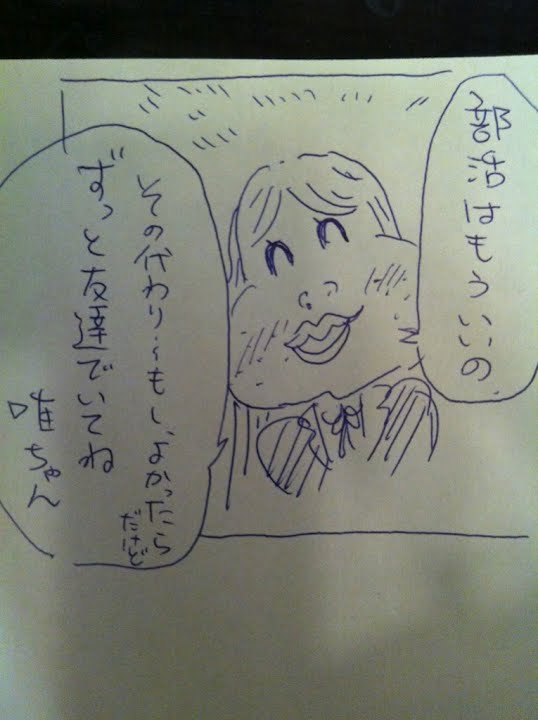 部活はもういいの
その代わり…もし、よかったら
だけど
ずっと友達でいてね
唯ちゃん